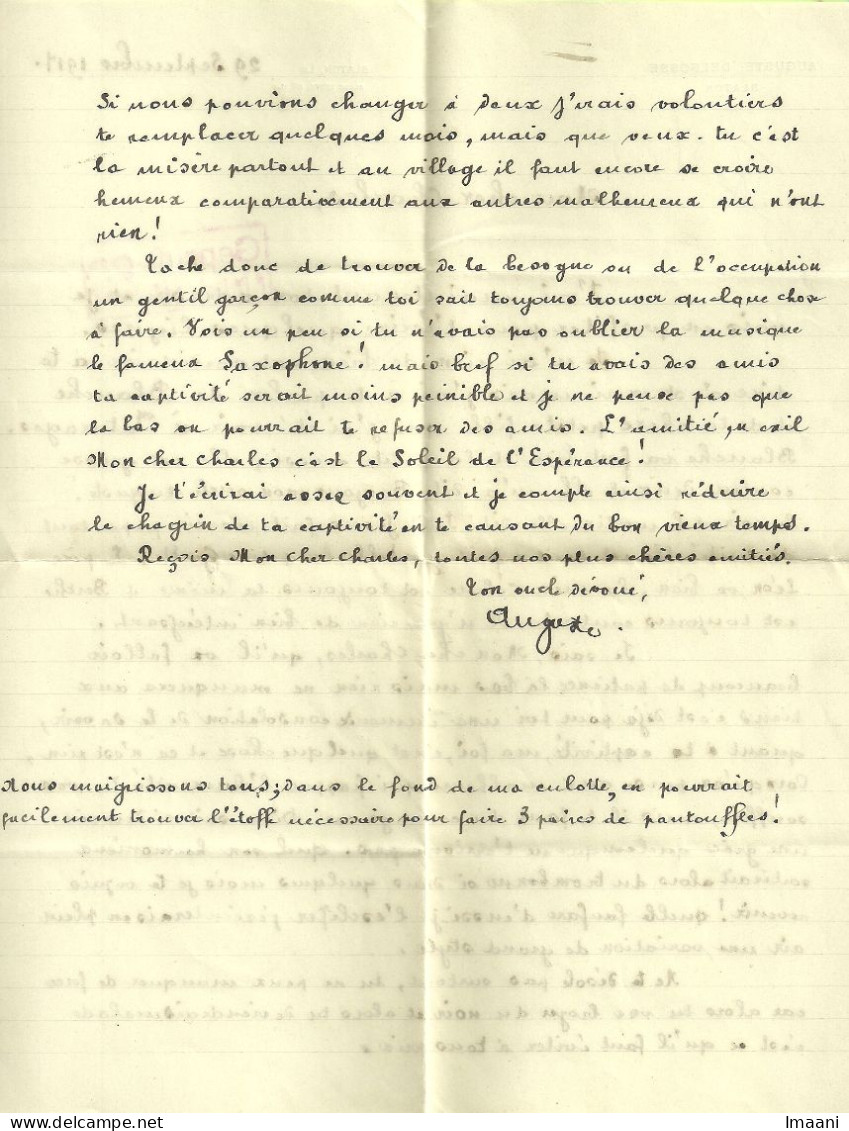 Si nous pouvions changer à deux j'irais volontiers
te remplacer quelques mois, mais que veux-tu c'est
la misère partout et au village il faut encore se croire
heureux comparativement aux autres malheureux qui n'ont
rien!
Tache donc de trouver de la besogne ou de l'occupation
un gentil garçon comme toi sait toujours trouver quelque chose
à faire. Vois un peu si tu n'avais pas oublier la musique
le fameux Saxophone! mais bref si tu avais des amis
ta captivité serait moins peinible et je ne pense pas que
la bas on pourrait te refuser des amis. L'amitié, en exil
Mon cher Charles c'est le Soleil de l'Espérance!
Je t'écrirai assez souvent et je compte ainsi réduire
le chagrin de ta captivité en te causant du bon vieux temps.
Reçois Mon cher Charles, toutes nos plus chères amitiés.
Ton oncle dévoué,
Auguste.
Nous maigrissons tous; dans le fond de ma culotte, on pourrait
facilement trouver l'étoffe nécessaire pour faire 3 paires de pantouffles!
Imaani